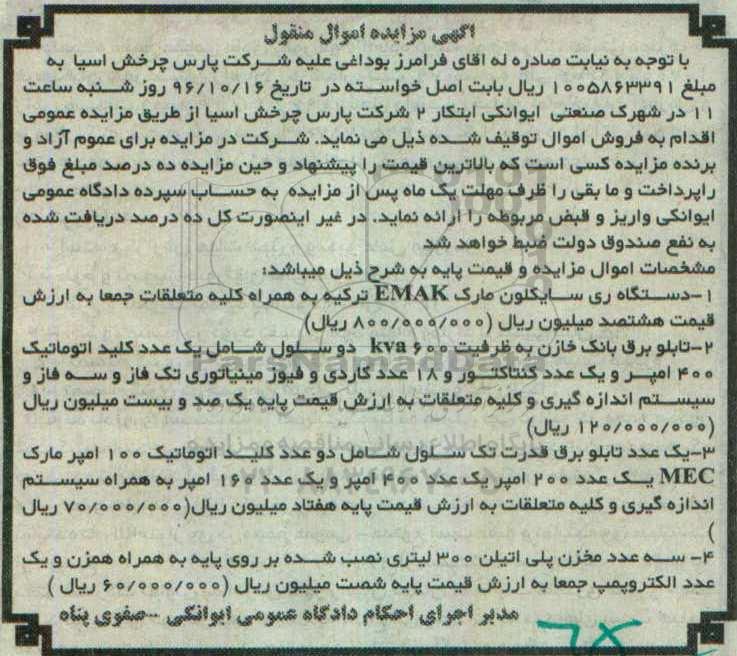 اگهی مزایده اموال منقول
با توجه به نیابت صادره له اقای فرامرز بوداغی علیه شرکت پارس چرخش اسیا به
مبلغ ۱۰۰۵۸۶۳۳۹۱ ریال بابت اصل خواسته در تاریخ ۹۶/۱۰/۱۶ روز شنبه ساعت
۱۱ در شهرک صنعتی ایوانکی ابتکار ۲ شرکت پارس چرخش اسیا از طریق مزایده عمومی
اقدام به فروش اموال توقیف شده ذیل می نماید. شرکت در مزایده برای عموم آزاد و
برنده مزایده کسی است که بالاترین قیمت را پیشنهاد و حین مزایده ده درصد مبلغ فوق
راپرداخت و ما بقی را ظرف مهلت یک ماه پس از مزایده به حساب سپرده دادگاه عمومی
ایوانکی واریز و قبض مربوطه را ارائه نماید. در غیر اینصورت کل ده درصد دریافت شده
به نفع صندوق دولت ضبط خواهد شد
مشخصات اموال مزایده و قیمت پایه به شرح ذیل میباشد:
۱-دستگاه ری سایکلون مارک EMAK ترکیه به همراه کلیه متعلقات جمعا به ارزش
قیمت هشتصد میلیون ریال (۸۰۰/۰۰۰/۰۰۰ ریال)
۲-تابلو برق بانک خازن به ظرفیت ۶۰۰ kva دو سلول شامل یک عدد کلید اتوماتیک
۴۰۰ امپر و یک عدد کنتاکتور و ۱۸ عدد گاردی و فیوز مینیاتوری تک فاز و سه فاز و
سیستم اندازه گیری و کلیه متعلقات به ارزش قیمت پایه یک صد و بیست میلیون ریال
(۱۲۰/۰۰۰/۰۰۰ ریال)
۳-یک عدد تابلو برق قدرت تک سلول شامل دو عدد کلید اتوماتیک ۱۰۰ امپر مارک
MEC یک عدد ۲۰۰ امپر یک عدد ۴۰۰ امپر و یک عدد ۱۶۰ امپر به همراه سیستم
اندازه گیری و کلیه متعلقات به ارزش قیمت پایه هفتاد میلیون ریال(۷۰/۰۰۰/۰۰۰ ریال
)
۴- سه عدد مخزن پلی اتیلن ۳۰۰ لیتری نصب شده بر روی پایه به همراه همزن و یک
عدد الکتروپمپ جمعا به ارزش قیمت پایه شصت میلیون ریال (۶۰/۰۰۰/۰۰۰ ریال )
مدیر اجرای احکام دادگاه عمومی ایوانکی --صفوی پناه